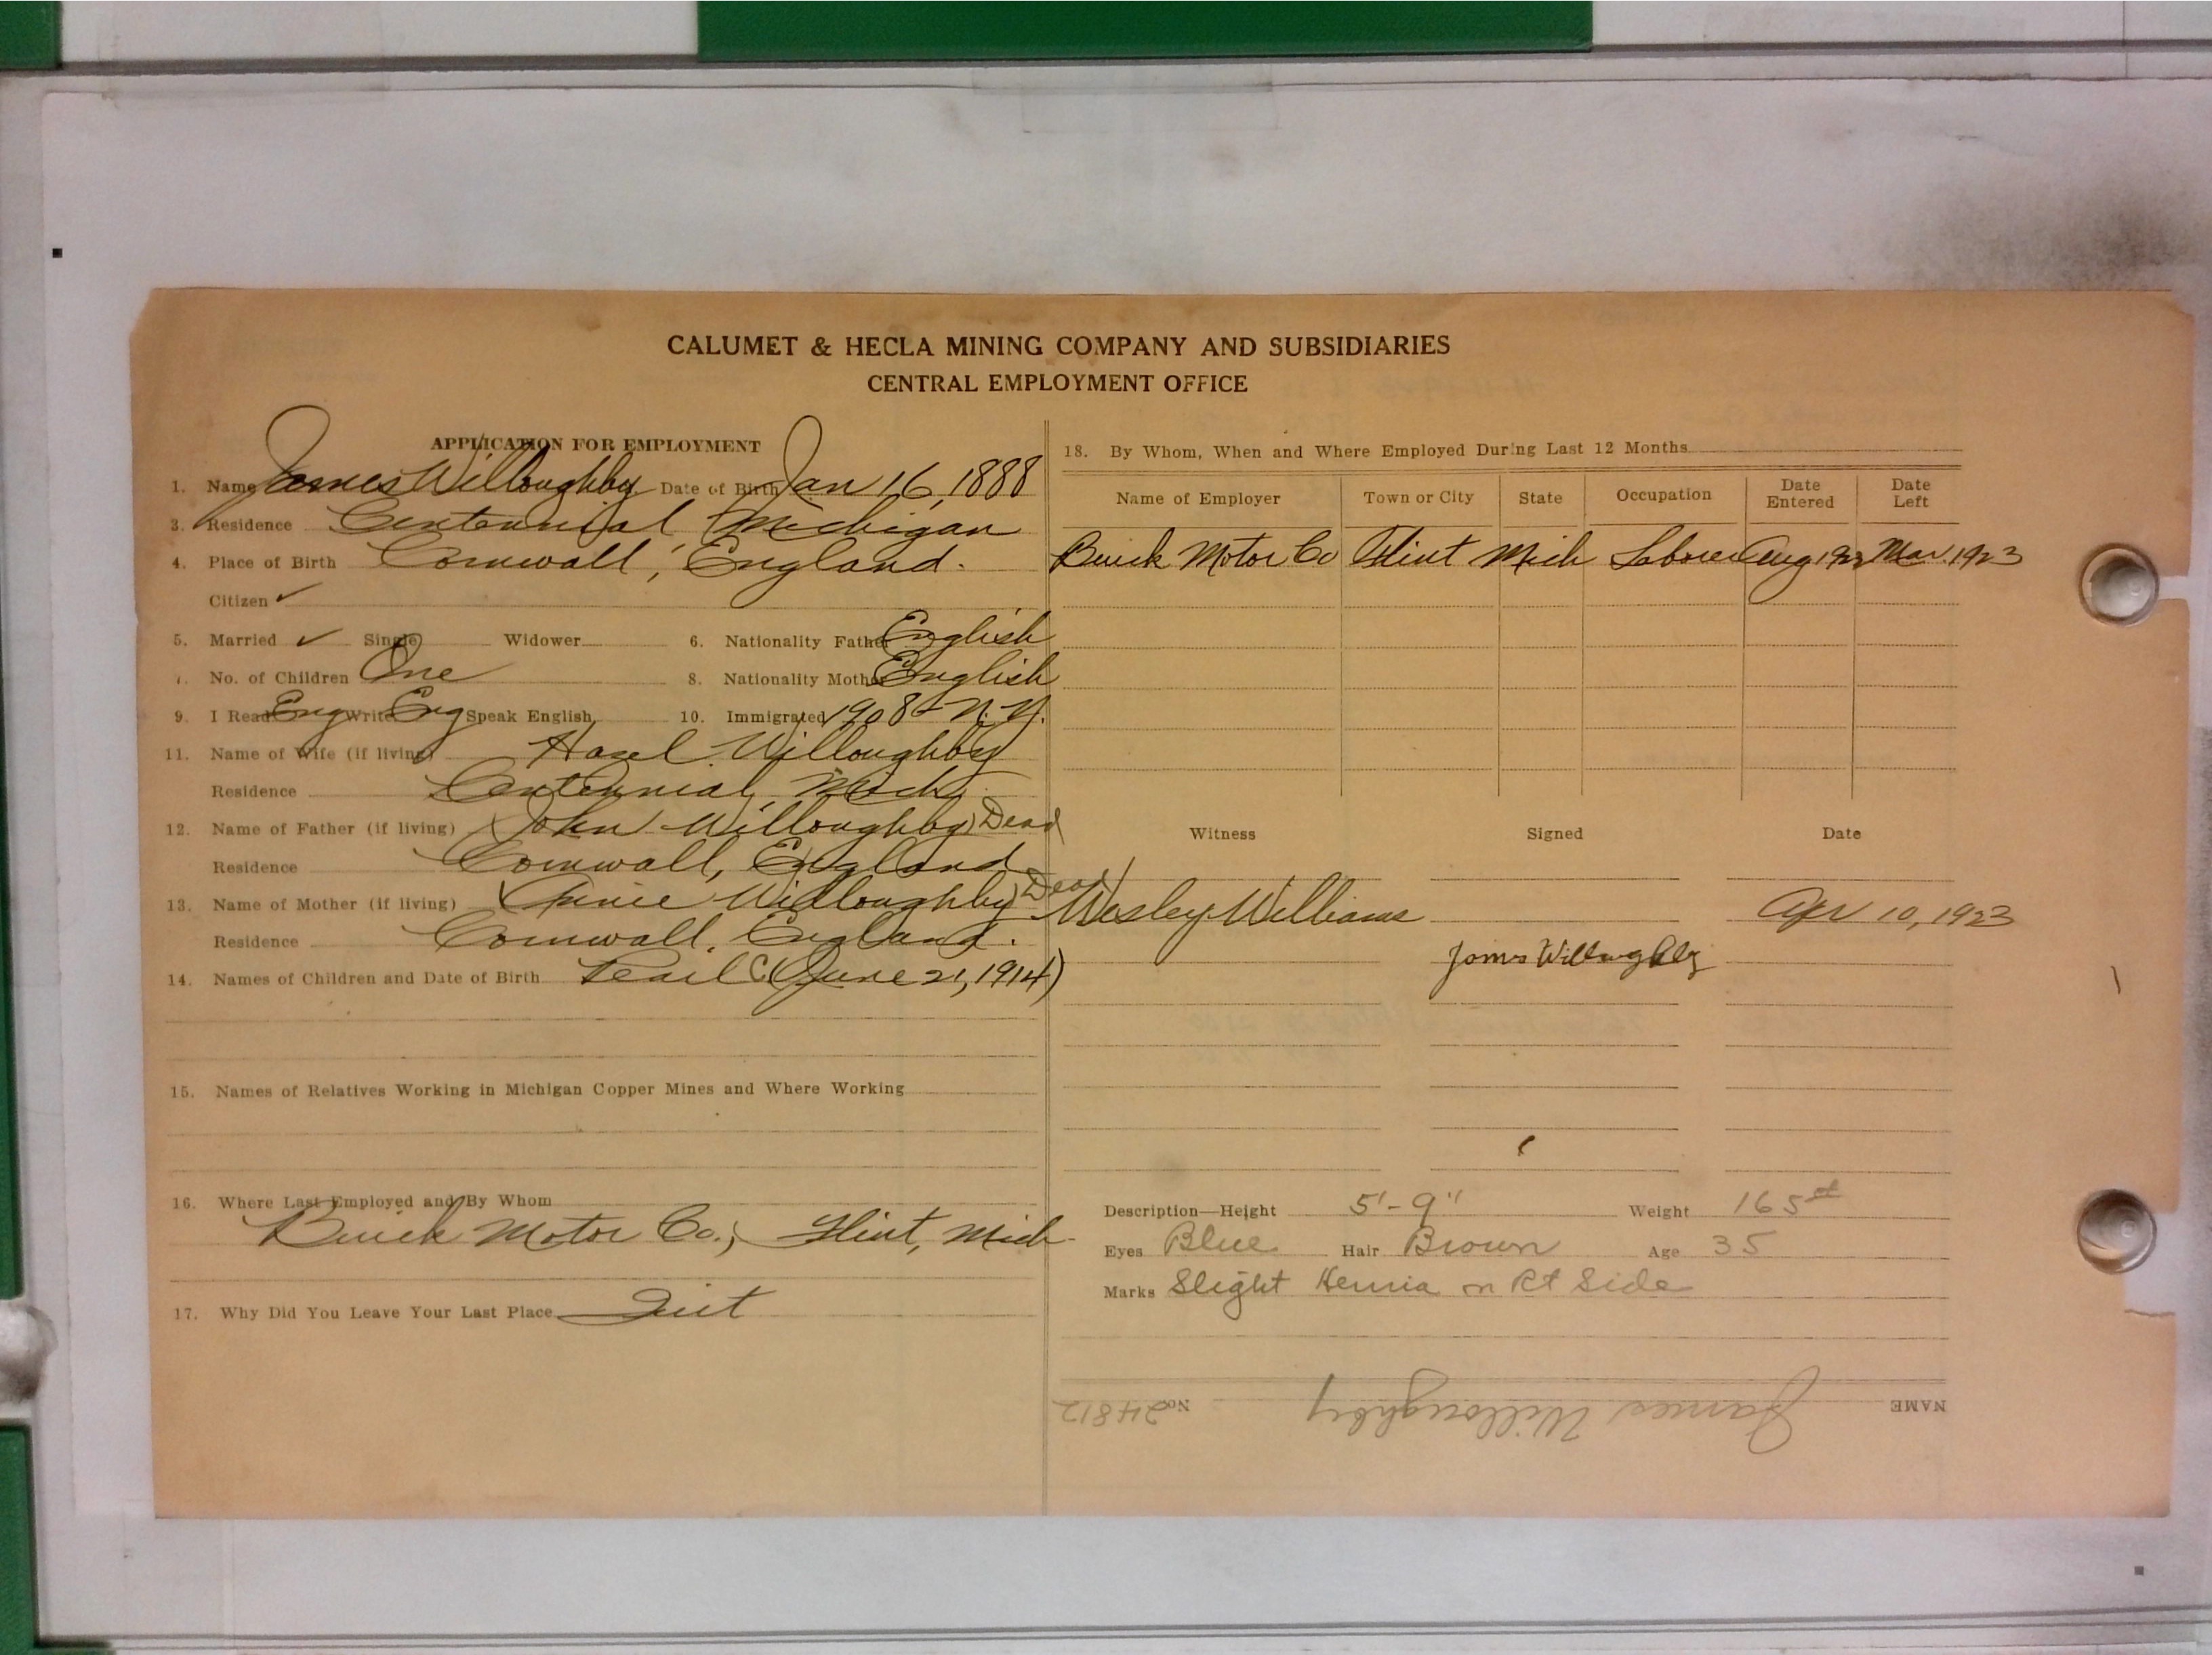 CALUMET & HECLA MINING COMPANY AND SUBSIDIARIES
CENTRAL EMPLOYMENT OFFICE
APPLICATION FOR EMPLOYMENT
1. Name James Willoughby Date of Birth Jan 16, 1888
3. Residence Centennial, Michigan
4. Place of Birth Cornwall, England.
Citizen ✓
5. Married ✓ Single Widower 6. Nationality Father English
7. No. of Children One 8. Nationality Mother English
9. I Read Eng Write Eng Speak English 10. Immigrated 1908 - N.Y.
11. Name of Wife (if living) Hazel Willoughby
Residence Centennial, Mich.
12. Name of Father (if living) (John Willoughby) Dead
Residence Cornwall, England
13. Name of Mother (if living) (Annie Willoughby) Dead
Residence Cornwall, England.
14. Names of Children and Date of Birth Pearl C. (June 21, 1914)
15. Names of Relatives Working in Michigan Copper Mines and Where Working
16. Where Last Employed and By Whom
Buick Motor Co., Flint, Mich
17. Why Did You Leave Your Last Place Quit
18. By Whom, When and Where Employed During Last 12 Months
Name of Employer Town or City State Occupation Date Entered Date Left
Buick Motor Co Flint Mich Laborer Aug 1922 Mar. 1923
Witness Signed Date
Wesley Williams Apr 10, 1923
James Willoughby
Description—Height 5'-9" Weight 165
Eyes Blue Hair Brown Age 35
Marks Slight Hernia on Rt Side
NAME James Willoughby No. 24812